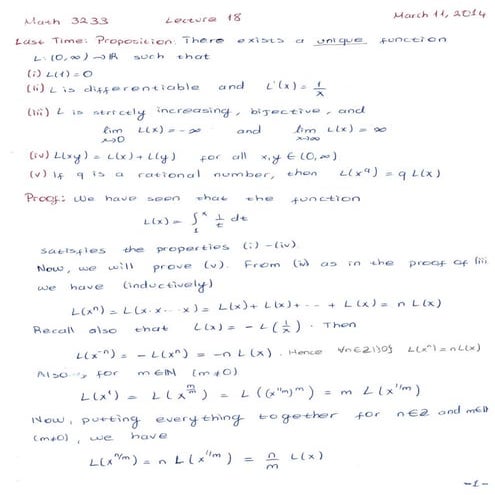 Math 3233 Lecture 18 March 11, 2014
Last Time: Proposition: There exists a unique function
L: (0,∞) → ℝ such that
(i) L(1) = 0
(ii) L is differentiable and L'(x) = 1/x
(iii) L is strictly increasing, bijective, and
lim x→0 L(x) = -∞ and lim x→∞ L(x) = ∞
(iv) L(xy) = L(x) + L(y) for all x,y ∈ (0,∞)
(v) If q is a rational number, then L(x^q) = q L(x)
Proof: We have seen that the function
L(x) = ∫_1^x 1/t dt
satisfies the properties (i)-(iv)
Now, we will prove (v). From (iv) as in the proof of (iii
we have (inductively)
L(x^n) = L(x·x···x) = L(x) + L(x) + ··· + L(x) = n L(x)
Recall also that L(x) = - L(1/x). Then
L(x^-n) = -L(x^n) = -n L(x). Hence ∀n∈ℤ\{0} L(x^n) = nL(x)
Also, for m∈ℕ (m≠0)
L(x^1) = L(x^(m/m)) = L((x^(1/m))^m) = m L(x^(1/m))
Now, putting everything together for n∈ℤ and m∈ℕ
(m≠0), we have
L(x^(n/m)) = n L(x^(1/m)) = n/m L(x)
-1-